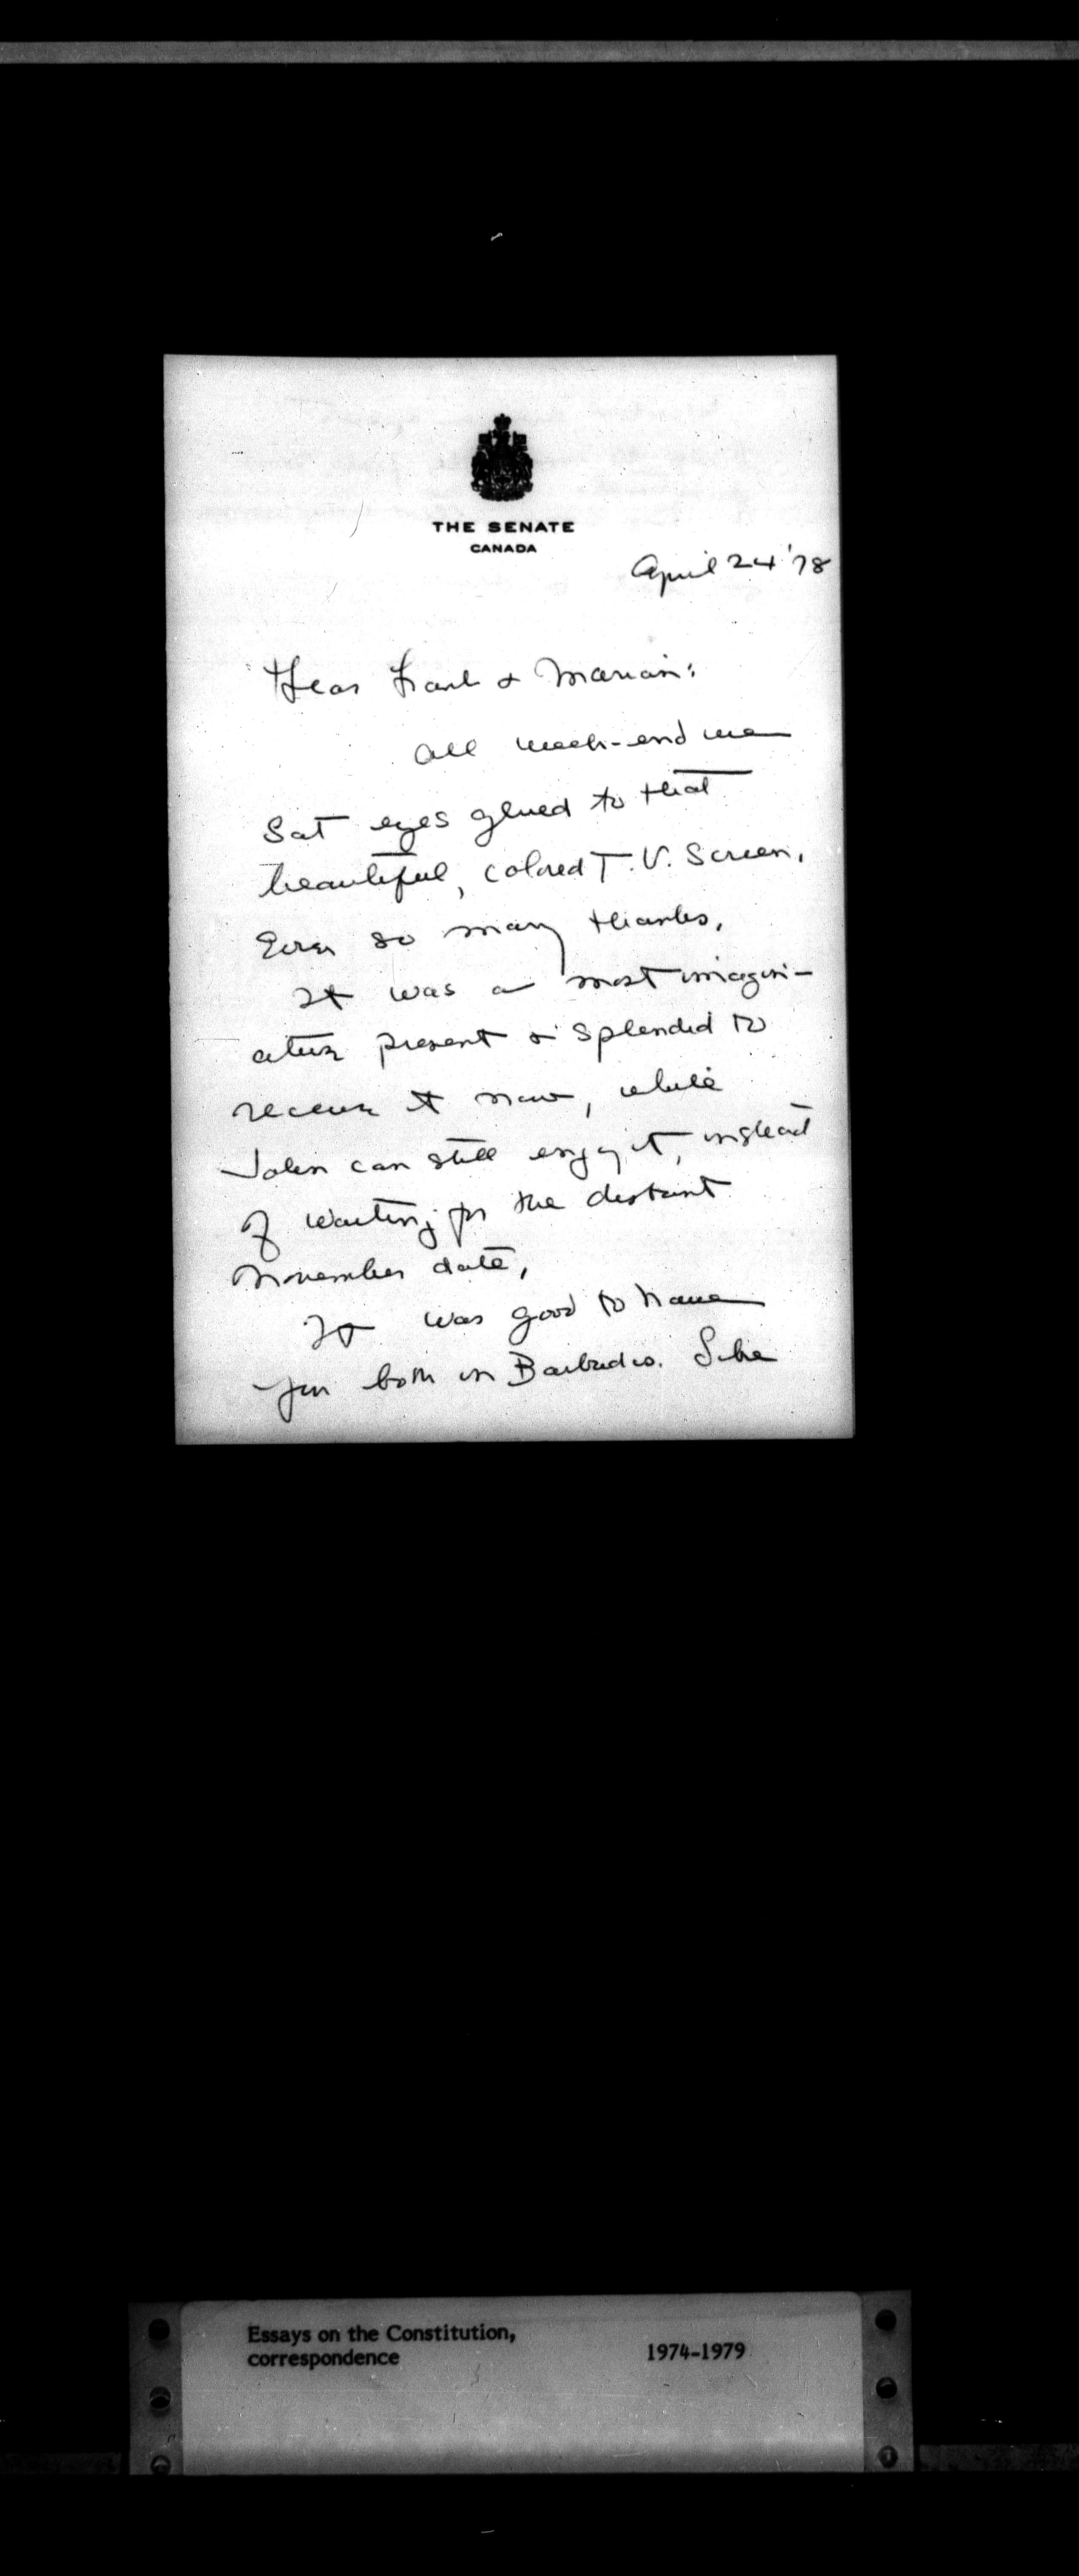 THE SENATE
CANADA
April 24 '78
Dear Frank & Marian:
All week-end we
sat eyes glued to that
beautiful, colored T.V. Screen.
Ever so many thanks.
It was a most imagin-
ative present & splendid to
receive it now, while
John can still enjoy it, instead
of waiting for the distant
November date.
It was good to have
you both in Barbados.
Essays on the Constitution,
correspondence
1974-1979